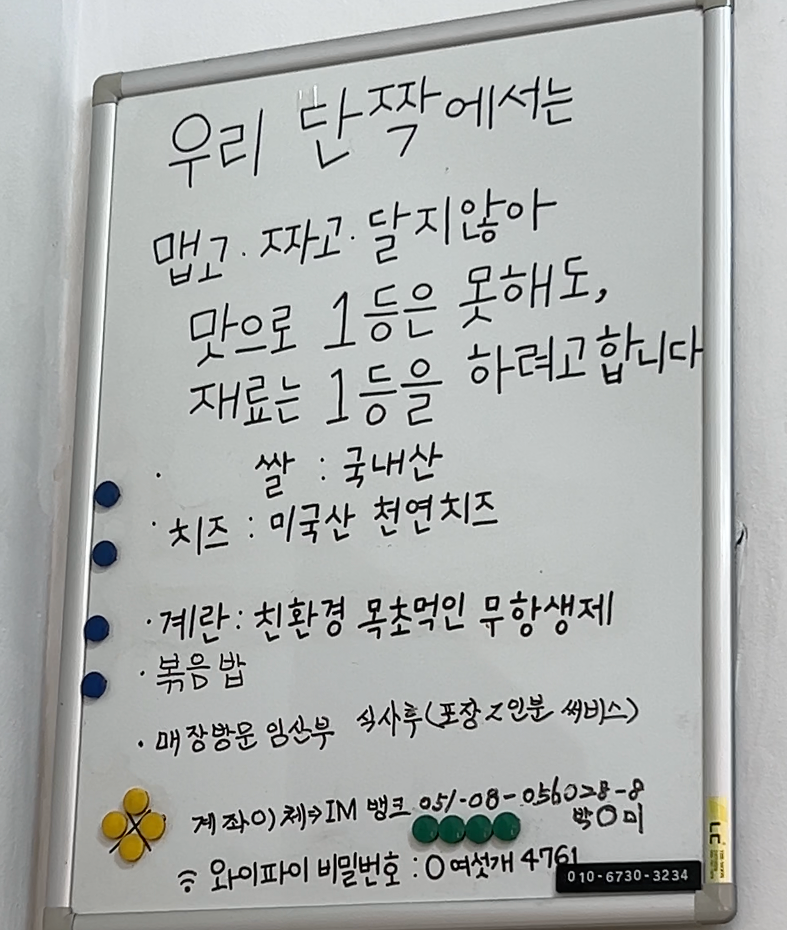 우리 단짝에서는
맵고·짜고·달지않아
맛으로 1등은 못해도,
재료는 1등을 하려고합니다
· 쌀 : 국내산
· 치즈 : 미국산 천연치즈
· 계란 : 친환경 목초먹인 무항생제
· 볶음밥
· 매장방문 임산부 식사후(포장 2인분 써비스)
계좌이체⇒IM 뱅크 051-08-056028-8
박O미
와이파이 비밀번호 : 0 여섯개 4761
010-6730-3234
LC